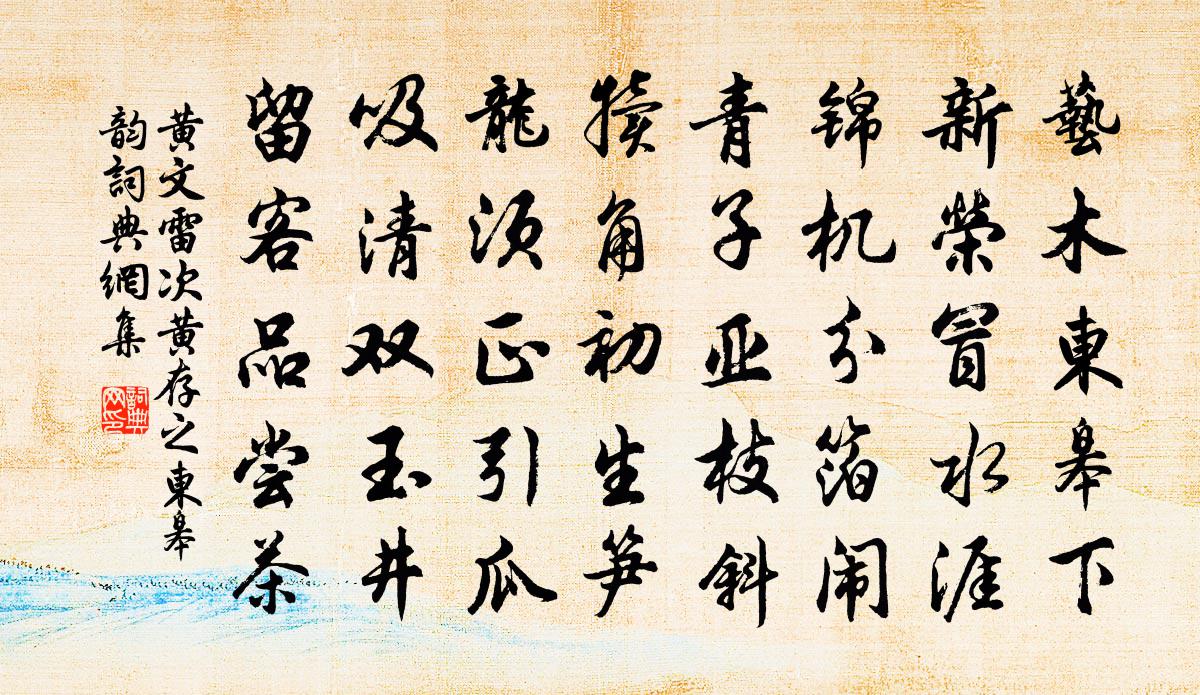 藝木東皋下
新榮冒水涯
锦机分箔闹
青子亚枝斜
犊角初生笋
龍须正引瓜
吸清双玉井
留客品尝茶
黄文雷次黄存之東皋
韵詞典網集
詞典网印